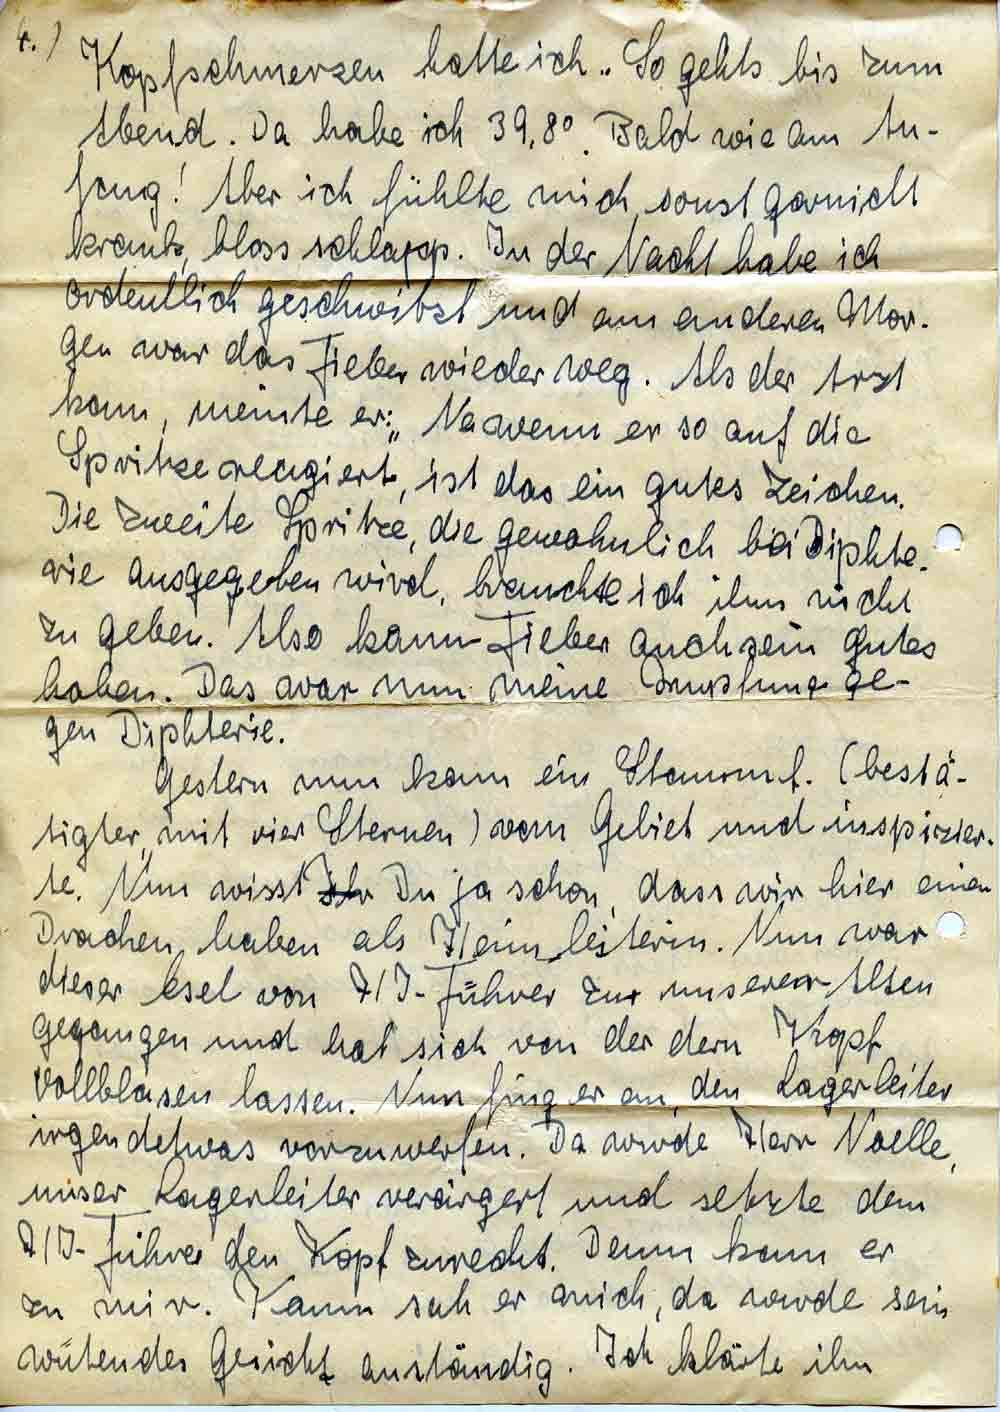 4.)
Kopfschmerzen hatte ich. So gehts bis zum
Abend. Da habe ich 39,8°. Bald wie am An-
fang! Aber ich fühlte mich sonst garnicht
krank, bloss schlapp. In der Nacht habe ich
ordentlich geschwitzt und am anderen Mor-
gen war das Fieber wieder weg. Als der Arzt
kam, meinte er: „Na wenn er so auf die
Spritze reagiert, ist das ein gutes Zeichen.
Die zweite Spritze, die gewöhnlich bei Diphte-
rie ausgegeben wird, brauchte ich ihm nicht
zu geben. Also kann Fieber auch sein gutes
haben. Das war nun meine Impfung ge-
gen Diphterie.
Gestern nun kam ein Stammf. (bestä-
tigter, mit vier Sternen) vom Gebiet und inspizier-
te. Nun wisst Ihr Du ja schon, dass wir hier einen
Drachen haben als Heimleiterin. Nun war
dieser Esel von HJ-Führer zur unserer Alten
gegangen und hat sich von der dem Kopf
vollblasen lassen. Nun fing er an, den Lagerleiter
irgendetwas vorzuwerfen. Da wurde Herr Noelle,
unser Lagerleiter verärgert und setzte dem
HJ-Führer den Kopf zurecht. Dann kam er
zu mir. Kaum sah er mich, da wurde sein
wütendes Gesicht anständig. Ich klärte ihn